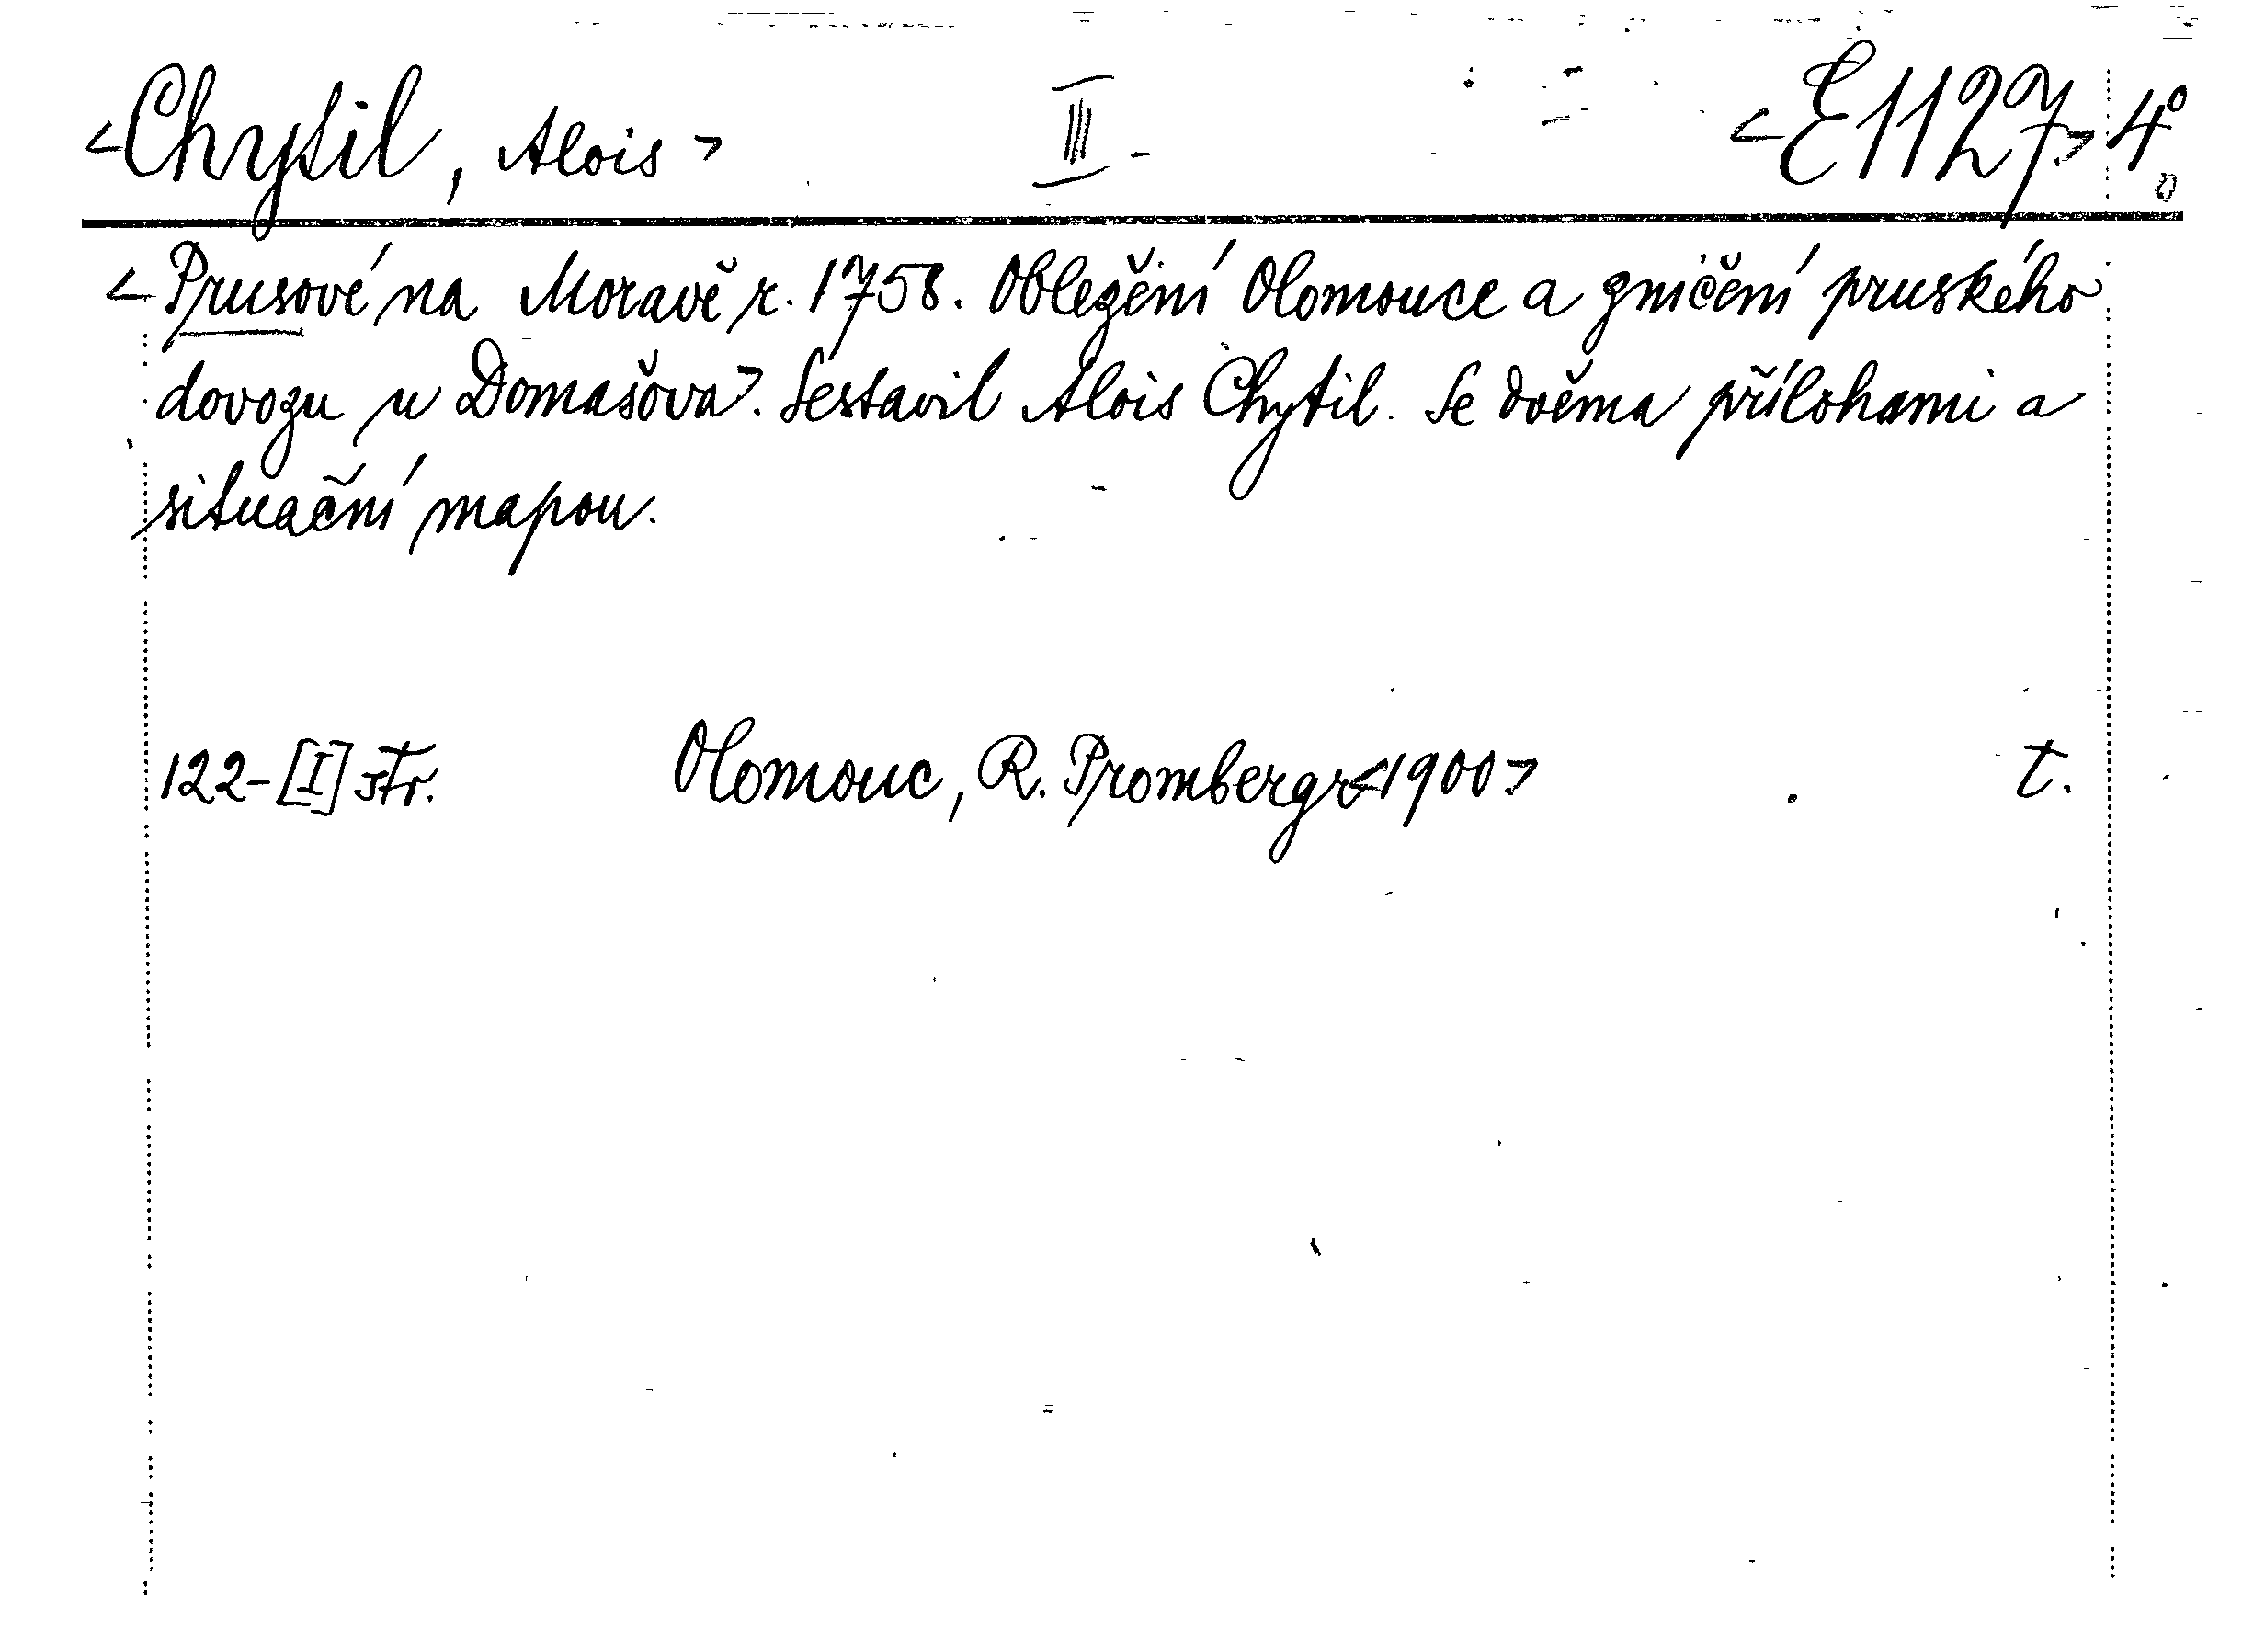 <Chytil, Alois> III <E1127> 4°
<Prusové na Moravě r. 1758. Obležení Olomouce a zničení pruského
dovozu u Domašova>. Sestavil Alois Chytil. Se dvěma přílohami a
situační mapou.
122-[I] str. Olomouc, R. Promberger <1900> t.